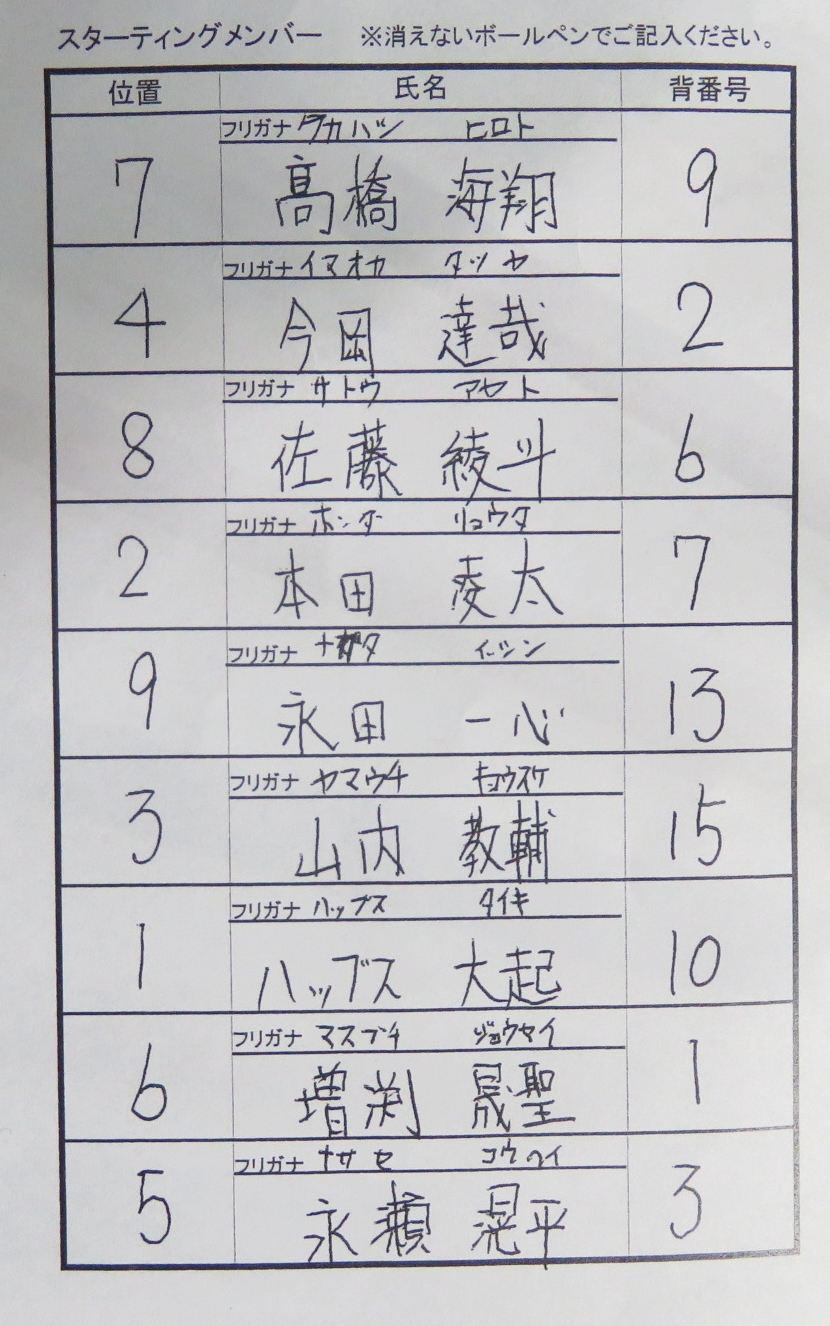 スターティングメンバー　※消えないボールペンでご記入ください。
位置　氏名　背番号
フリガナ タカハシ　ヒロト
7　髙橋　海翔　9
フリガナ イマオカ　タツヤ
4　今岡　達哉　2
フリガナ サトウ　アヤト
8　佐藤　綾斗　6
フリガナ ホンダ　リョウタ
2　本田　凌太　7
フリガナ ナガタ　イッシン
9　永田　一心　13
フリガナ ヤマウチ　キョウスケ
3　山内　教輔　15
フリガナ ハップス　タイキ
1　ハップス　大起　10
フリガナ マスブチ　ジョウセイ
6　増渕　晟聖　1
フリガナ ナガセ　コウヘイ
5　永瀬　滉平　3